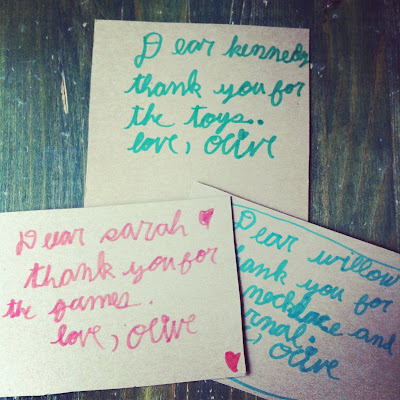 Dear kennedy,
thank you for
the toys..
love, Olive
Dear sarah
thank you for
the games.
love, Olive
Dear willow
hank you for
nocklace and
rnal.
, Olive